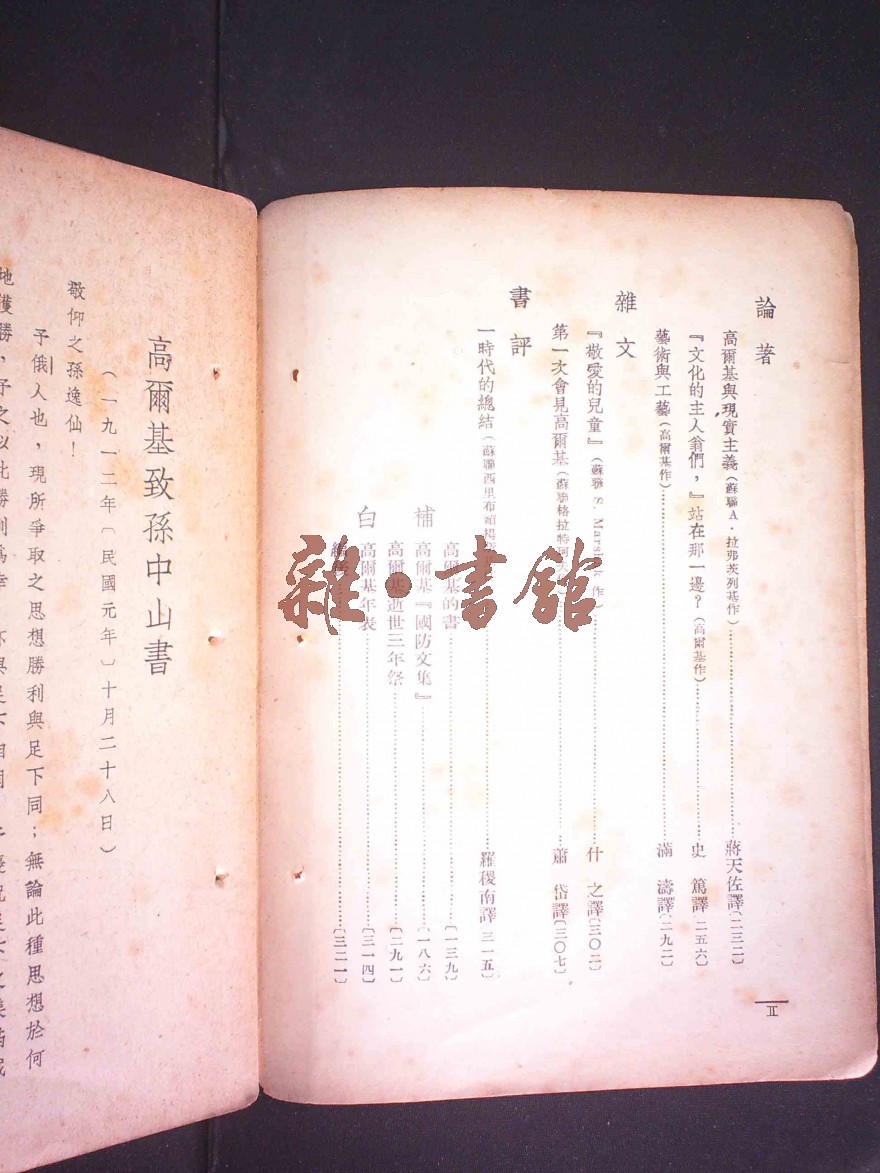 論著
高爾基與現實主義(蘇聯A·拉弗茨列基作)……蔣天佐譯〔二三二〕
『文化的主人翁們，』站在那一邊？(高爾基作)……史篤譯〔二五六〕
藝術與工藝(高爾基作)……滿濤譯〔二九二〕
雜文
『敬愛的兒童』(蘇聯S. Marshk作)……什之譯〔三〇二〕
第一次會見高爾基(蘇聯格拉特珂夫……蕭岱譯〔三〇七〕
書評
一時代的總結(蘇聯西里布……羅稷南譯〔三一五〕
高爾基的書……〔一三九〕
補白
高爾基『國防文集』……〔一八六〕
高爾基逝世三年祭……〔二九一〕
高爾基年表……〔三一四〕
編後……〔三二一〕
II
雜·書館
高爾基致孫中山書
(一九一二年〔民國元年〕十月二十八日)
敬仰之孫逸仙！
予俄人也，現所爭取之思想勝利與足下同；無論此種思想於何
地獲勝，予之以此勝利爲幸